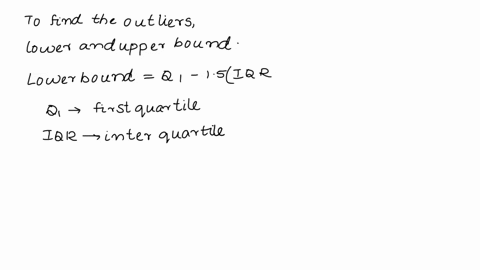 To find the outliers,
lower and upper bound.
Lower bound = Q1 - 1.5(IQR
Q1 → first quartile
IQR → inter quartile